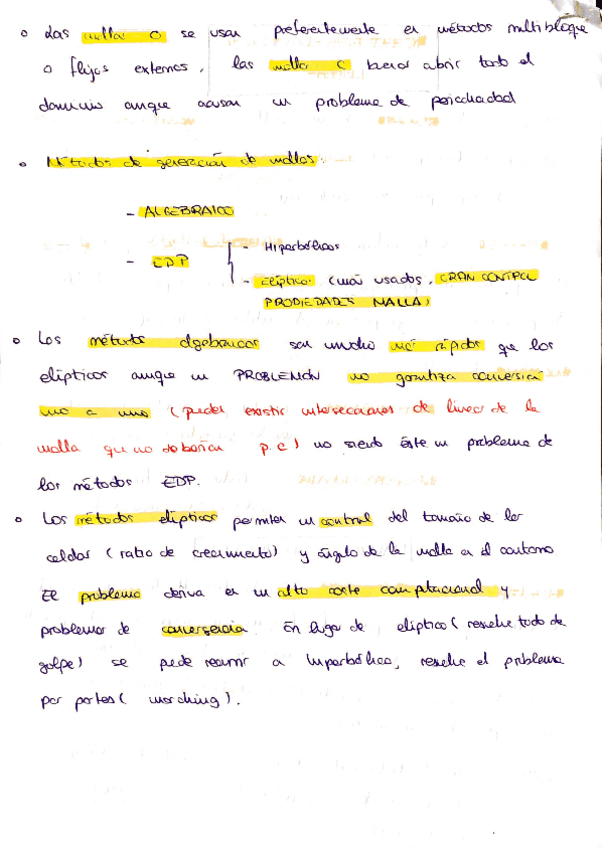 o Las mallas O se usan preferentemente en métodos multibloque
o flujos externos, las mallas C buscan abrir todo el
dominio aunque causan un problema de periodicidad
o Métodos de generación de mallas:
- ALGEBRAICO
- EDP { - Hiperbólicos
- Elíptico (más usados, GRAN CONTROL
PROPIEDADES MALLA)
o Los métodos algebraicos son mucho más rápidos que los
elípticos aunque un PROBLEMÓN no garantiza conversión
uno a uno (pueden existir intersecciones de líneas de la
malla que no deberían p.e) no siendo éste un problema de
los métodos EDP.
o Los métodos elípticos permiten un control del tamaño de las
celdas (ratio de crecimiento) y ángulo de la malla en el contorno
El problema deriva en un alto coste computacional y
problemas de convergencia. En lugar de elíptico (resuelve todo de
golpe) se puede recurrir a hiperbólico, resuelve el problema
por partes (marching).